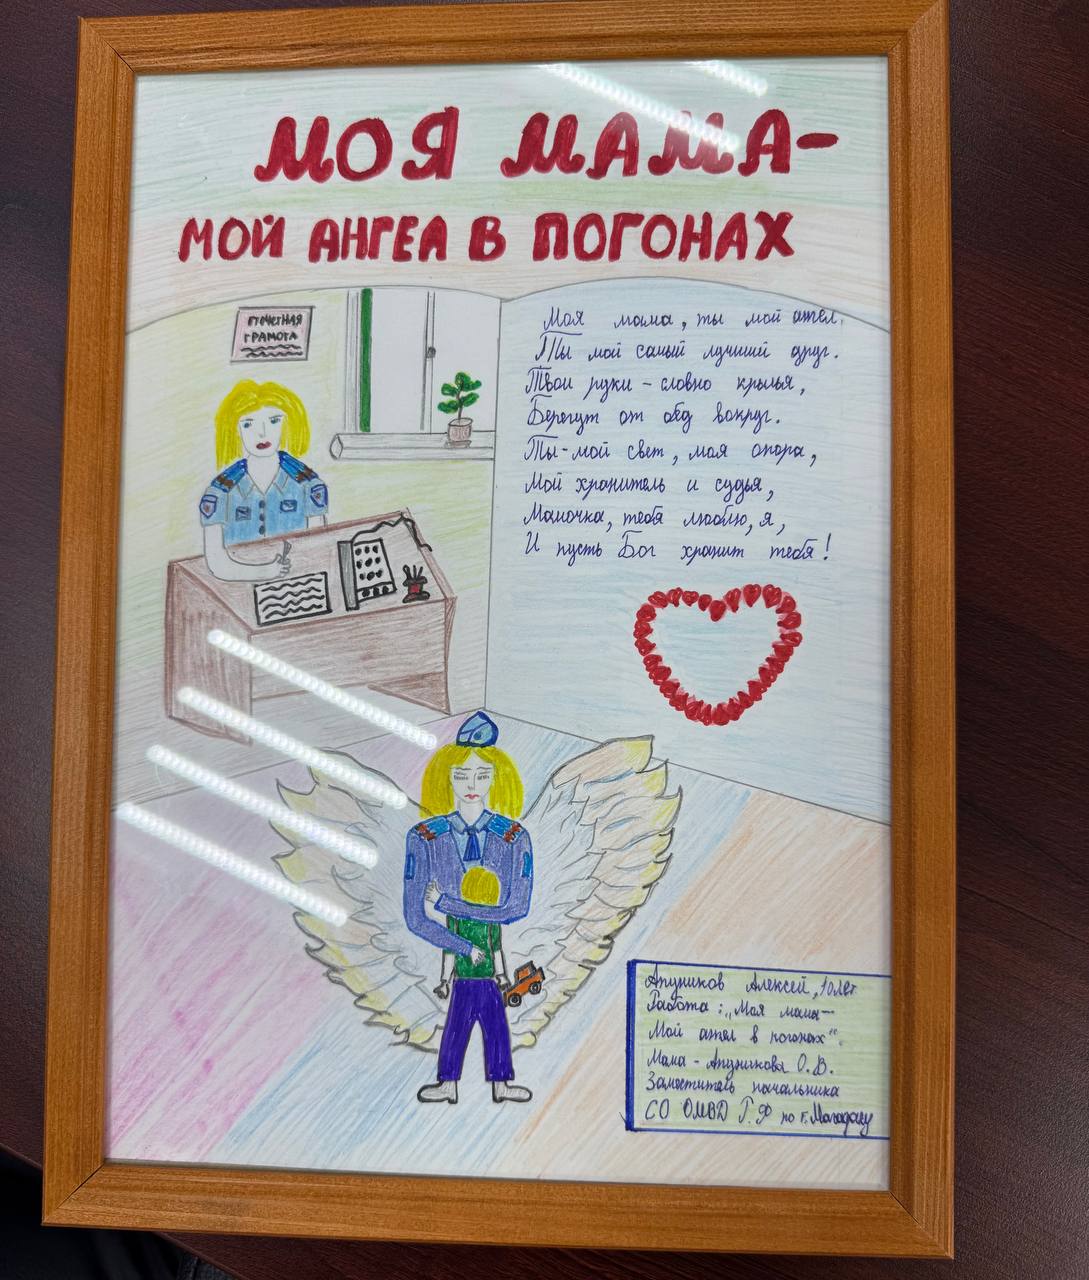 МОЯ МАМА-
МОЙ АНГЕЛ В ПОГОНАХ
ПОЧЕТНАЯ
ГРАМОТА
Моя мама, ты мой ангел,
Ты мой самый лучший друг.
Твои руки - словно крылья,
Берегут от бед вокруг.
Ты-мой свет, моя опора,
Мой хранитель и судья,
Мамочка, тебя люблю, я,
И пусть Бог хранит тебя!
Алексей, 10 лет
Работа: „Моя мама-
Мой ангел в погонах".
Мама - О.В.
Заместитель начальника
СО ОМВД по г. Магадану